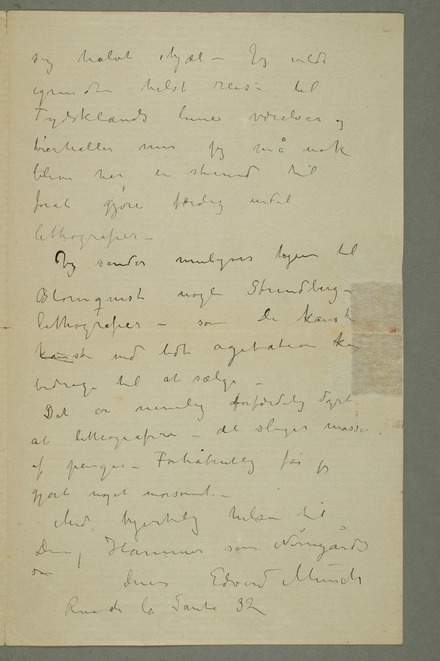 sig halvt ihjæl – Jeg vilde
igrunden helst reise til
Tydsklands lune værelser og
bierhaller men jeg må nok
blive her en stund til
forat gjøre færdig endel
lithografier –
Jeg sender muligens hjem til
Blomquist nogle Strindberg-
lithografier – som De kanske
kanske ved lidt agitation kan
bidrage til at sælge –
Det er nemlig forfærdelig dyrt
at lithografere – det sluger masser
af penge – Forhåbentlig får jeg
gjort noget morsomt –
Med hjertelig hilsen til
Dem, Hammer som Nørregård
Deres Edvard Munch
Rue de la Santé 32